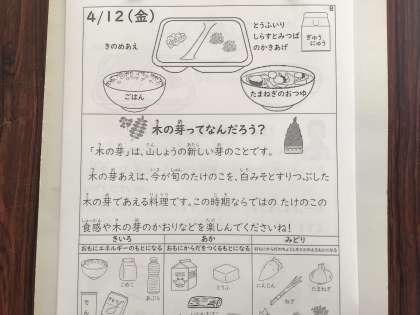 4/12(金)
8
きのめあえ
とうふいり
しらすとみつば
のかきあげ
ぎゅう
にゅう
ごはん
たまねぎのおつゆ
木の芽ってなんだろう?
「木の芽」は、山しょうの新しい芽のことです。
木の芽あえは、今が旬のたけのこを、白みそとすりつぶした
木の芽であえる料理です。この時期ならではの たけのこの
食感や木の芽のかおりなどを楽しんでくださいね!
きいろ
あか
みどり
おもにエネルギーのもとになる
おもにからだをつくるもとになる
おもにからだのちょうしをととのえるもとになる
こめこ
あぶら
とうふ
にんじん
ねぎ
たまねぎ
でん